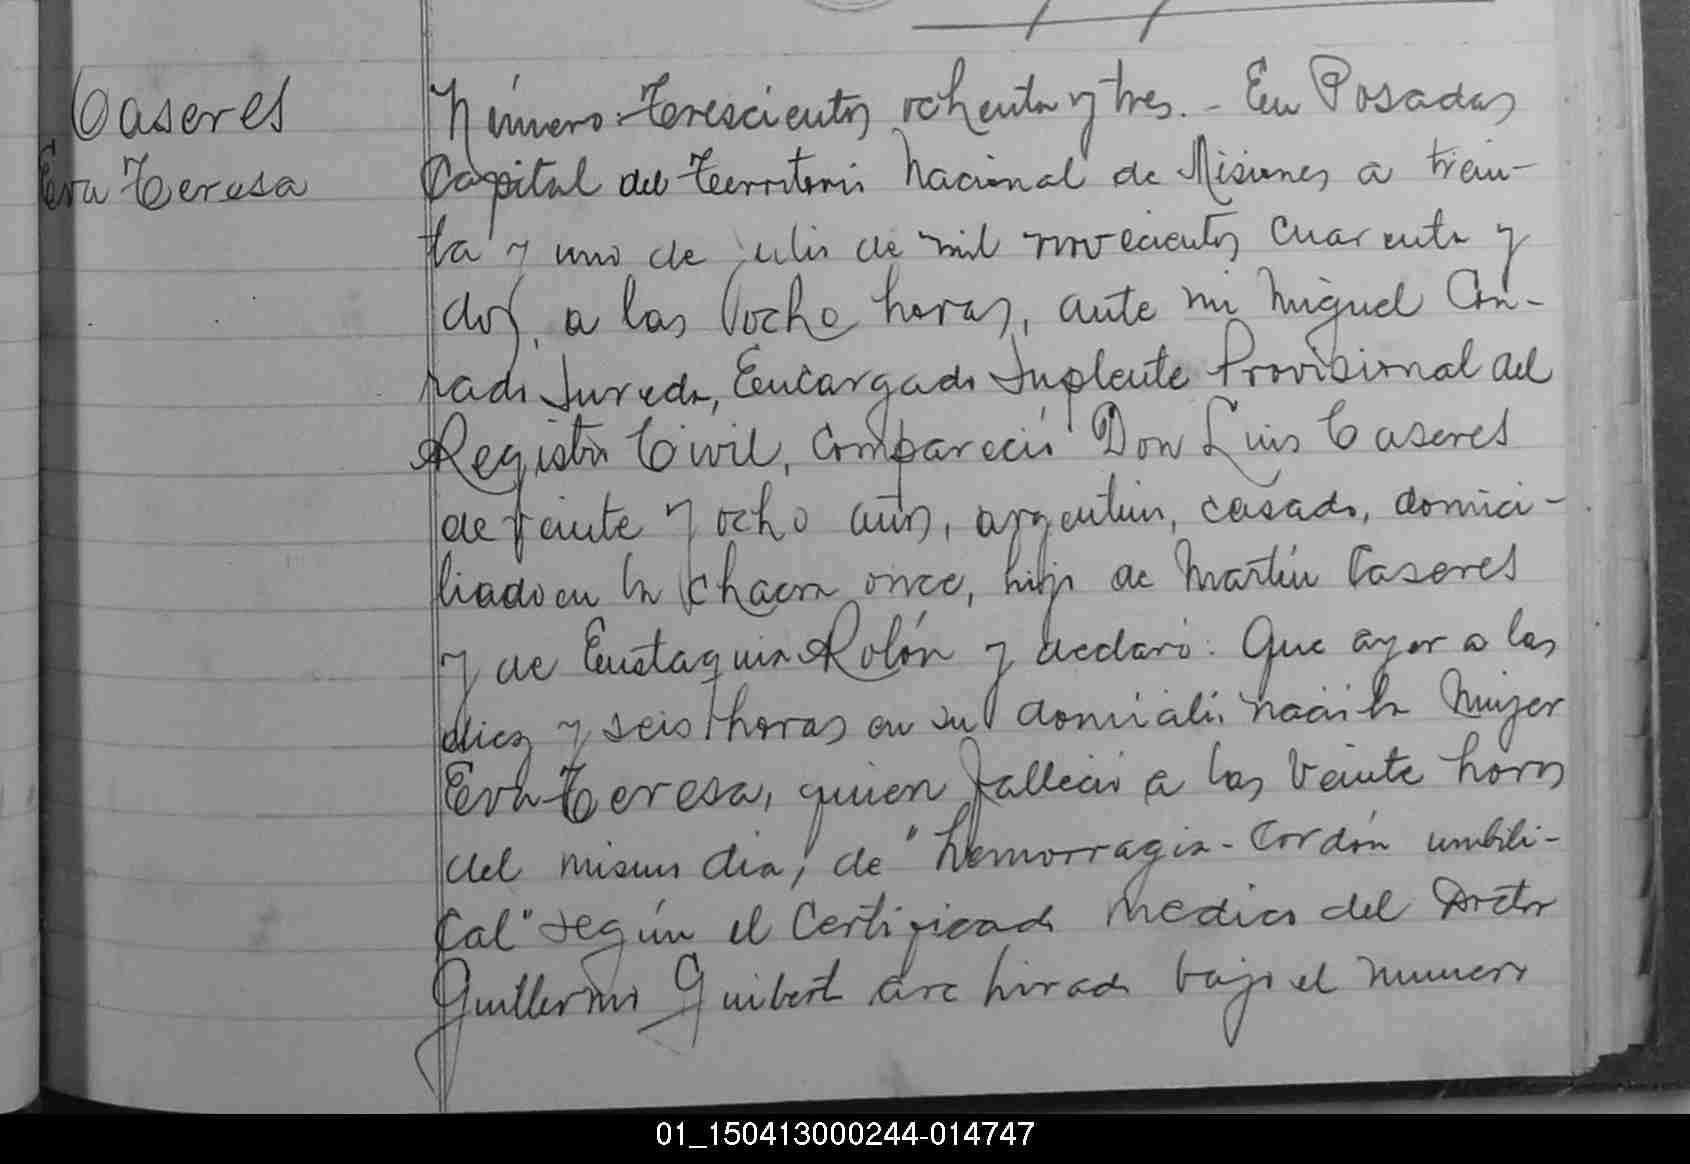 Caseres
Eva Teresa
Número Trescientos ochenta y tres. - En Posadas
Capital del Territorio Nacional de Misiones a trein-
ta y uno de julio de mil novecientos cuarenta y
dos, a las ocho horas, ante mi Miguel Con-
rado Jureda, Encargado Suplente Provisional del
Registro Civil, compareció Don Luis Caseres
de veinte y ocho años, argentino, casado, domici-
liado en la chacra once, hijo de Martín Caseres
y de Eustaquia Rolón y declaró: Que ayer a las
diez y seis horas en su domicilio nació la mujer
Eva Teresa, quien falleció a las veinte horas
del mismo dia, de "hemorragia - Cordón umbili-
cal" según el Certificado medico del Doctor
Guillermo Guibert archivado bajo el numero
01_150413000244-014747